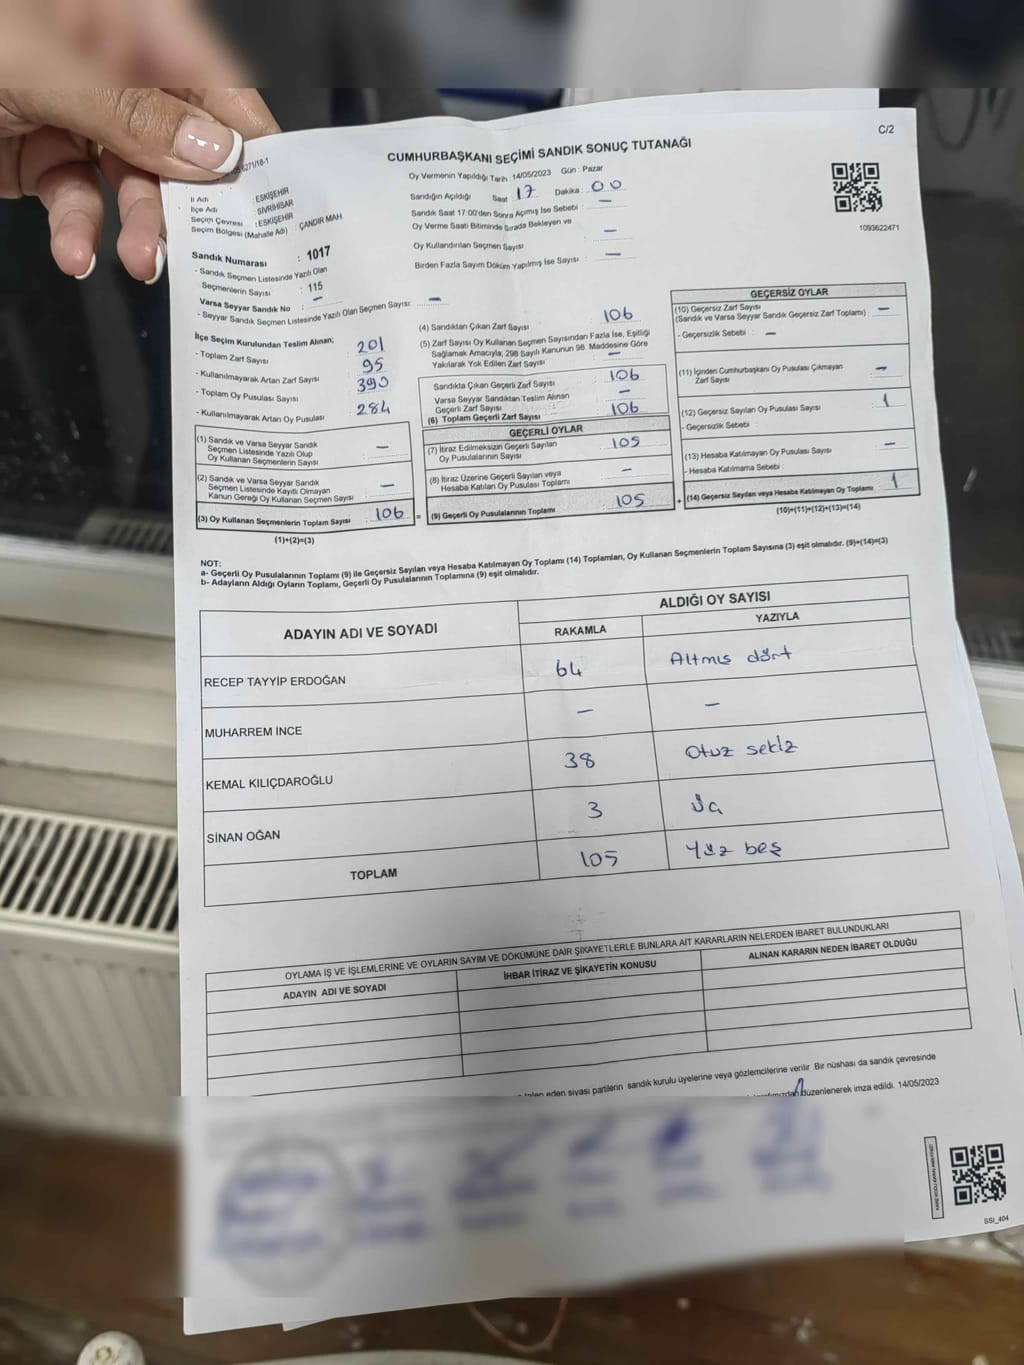 CUMHURBAŞKANI SEÇİMİ SANDIK SONUÇ TUTANAĞI
C/2
Oy Vermenin Yapıldığı Tarih :14/05/2023 Gün : Pazar
İl Adı : ESKİŞEHİR
İlçe Adı : SİVRİHİSAR
Seçim Çevresi : ESKİŞEHİR
Seçim Bölgesi (Mahalle Adı) : ÇANDIR MAH.
Sandığın Açıldığı Saat : 17 Dakika : 00
Sandık Saat 17:00'den Sonra Açımış İse Sebebi : —
Oy Verme Saati Bitiminde Sırada Bekleyen ve
Oy Kullandırılan Seçmen Sayısı —
Birden Fazla Sayım Döküm Yapılmış İse Sayısı : —
1093622471
Sandık Numarası : 1017
- Sandık Seçmen Listesinde Yazılı Olan
Seçmenlerin Sayısı : 115
Varsa Seyyar Sandık No : —
- Seyyar Sandık Seçmen Listesinde Yazılı Olan Seçmen Sayısı: —
İlçe Seçim Kurulundan Teslim Alınan;
- Toplam Zarf Sayısı 201
- Kullanılmayarak Artan Zarf Sayısı 95
- Toplam Oy Pusulası Sayısı 390
- Kullanılmayarak Artan Oy Pusulası 284
(1) Sandık ve Varsa Seyyar Sandık
Seçmen Listesinde Yazılı Olup
Oy Kullanan Seçmenlerin Sayısı —
(2) Sandık ve Varsa Seyyar Sandık
Seçmen Listesinde Kayıtlı Olmayan
Kanun Gereği Oy Kullanan Seçmen Sayısı —
(3) Oy Kullanan Seçmenlerin Toplam Sayısı 106
(1)+(2)=(3)
(4) Sandıktan Çıkan Zarf Sayısı 106
(5) Zarf Sayısı Oy Kullanan Seçmen Sayısından Fazla İse, Eşitliği
Sağlamak Amacıyla; 298 Sayılı Kanunun 98. Maddesine Göre
Yakılarak Yok Edilen Zarf Sayısı —
Sandıkta Çıkan Geçerli Zarf Sayısı 106
Varsa Seyyar Sandıktan Teslim Alınan
Geçerli Zarf Sayısı —
(6) Toplam Geçerli Zarf Sayısı 106
GEÇERLİ OYLAR
(7) İtiraz Edilmeksizin Geçerli Sayılan
Oy Pusulalarının Sayısı 105
(8) İtiraz Üzerine Geçerli Sayılan veya
Hesaba Katılan Oy Pusulası Toplamı —
= (9) Geçerli Oy Pusulalarının Toplamı 105
GEÇERSİZ OYLAR
(10) Geçersiz Zarf Sayısı —
(Sandık ve Varsa Seyyar Sandık Geçersiz Zarf Toplamı)
- Geçersizlik Sebebi : —
(11) İçinden Cumhurbaşkanı Oy Pusulası Çıkmayan
Zarf Sayısı —
(12) Geçersiz Sayılan Oy Pusulası Sayısı 1
- Geçersizlik Sebebi :
(13) Hesaba Katılmayan Oy Pusulası Sayısı —
- Hesaba Katılmama Sebebi :
+ (14) Geçersiz Sayılan veya Hesaba Katılmayan Oy Toplamı 1
(10)+(11)+(12)+(13)=(14)
NOT:
a- Geçerli Oy Pusulalarının Toplamı (9) ile Geçersiz Sayılan veya Hesaba Katılmayan Oy Toplamı (14) Toplamları, Oy Kullanan Seçmenlerin Toplam Sayısına (3) eşit olmalıdır. (9)+(14)=(3)
b- Adayların Aldığı Oyların Toplamı, Geçerli Oy Pusulalarının Toplamına (9) eşit olmalıdır.
ADAYIN ADI VE SOYADI
ALDIĞI OY SAYISI
RAKAMLA YAZIYLA
RECEP TAYYİP ERDOĞAN 64 Altmış dört
MUHARREM İNCE — —
KEMAL KILIÇDAROĞLU 38 Otuz sekiz
SİNAN OĞAN 3 Üç
TOPLAM 105 Yüz beş
OYLAMA İŞ VE İŞLEMLERİNE VE OYLARIN SAYIM VE DÖKÜMÜNE DAİR ŞİKAYETLERLE BUNLARA AİT KARARLARIN NELERDEN İBARET BULUNDUKLARI
ADAYIN ADI VE SOYADI İHBAR İTİRAZ VE ŞİKAYETİN KONUSU ALINAN KARARIN NEDEN İBARET OLDUĞU
talep eden siyasi partilerin sandık kurulu üyelerine veya gözlemcilerine verilir. Bir nüshası da sandık çevresinde
düzenlenerek imza edildi. 14/05/2023
SSI_404